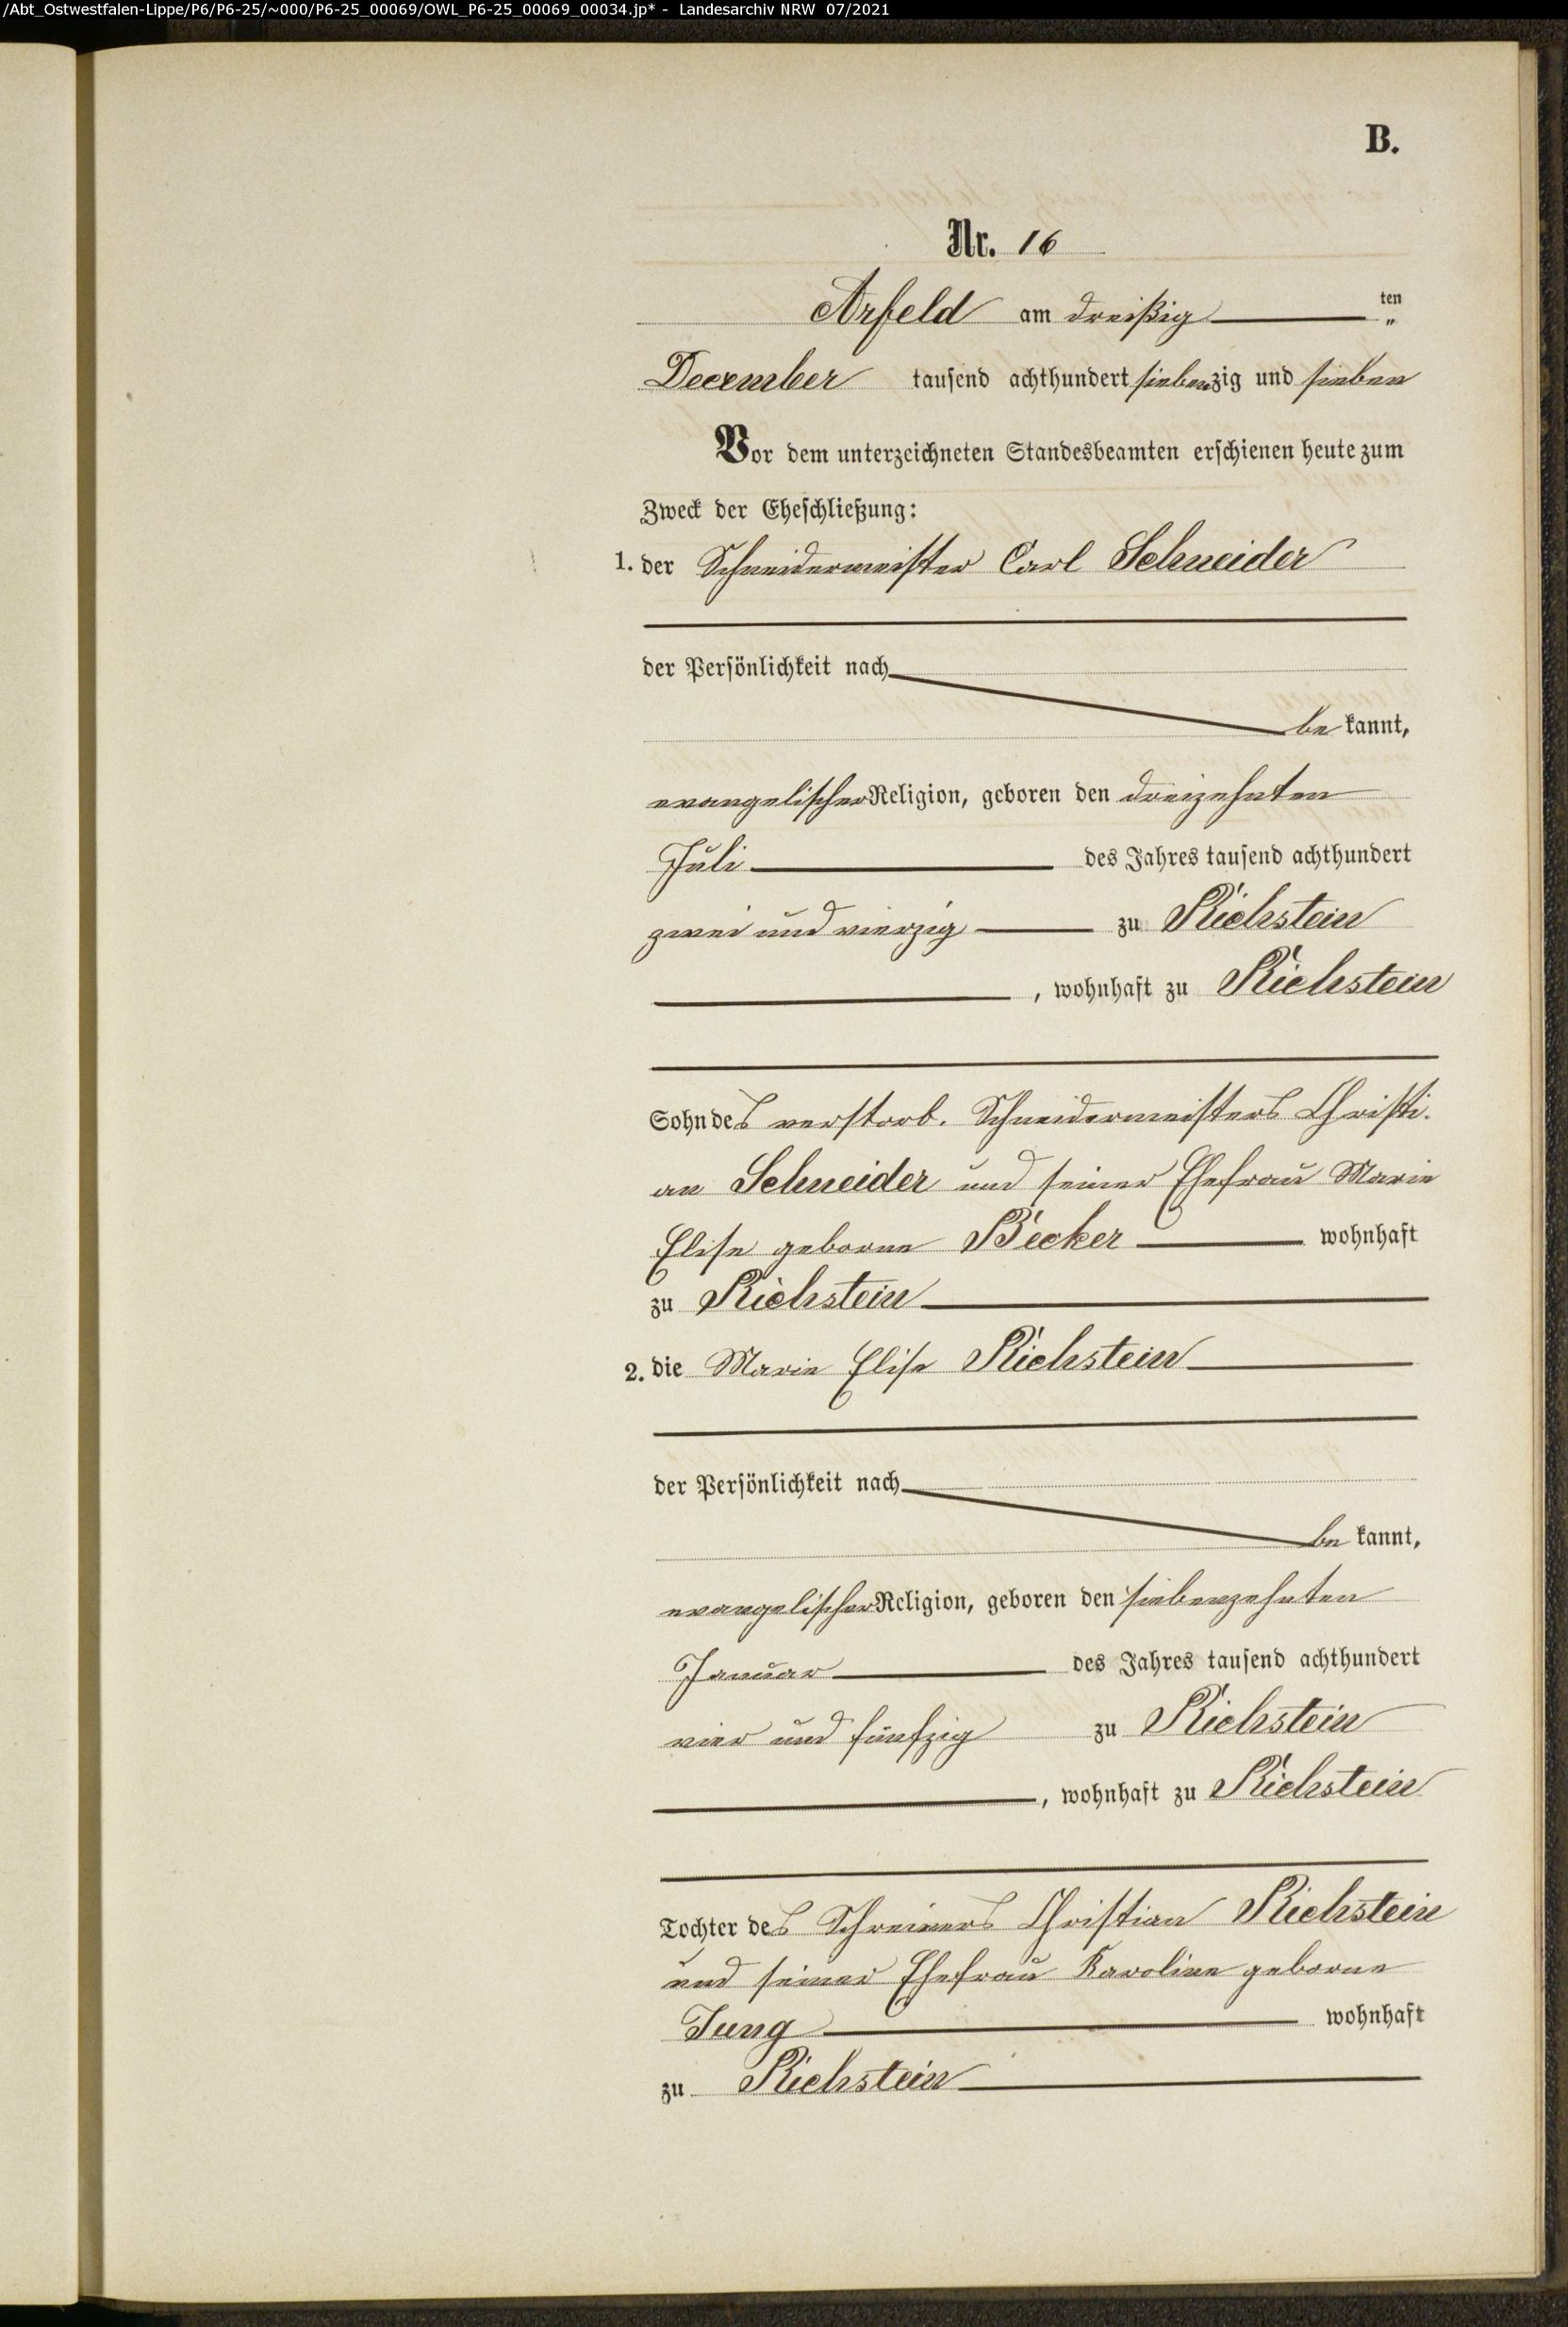 /Abt_Ostwestfalen-Lippe/P6/P6-25/~000/P6-25_00069/OWL_P6-25_00069_00034.jp* - Landesarchiv NRW 07/2021
B.
Nr. 16
Arfeld am dreißig ten
December tausend achthundert siebenzig und sieben
Vor dem unterzeichneten Standesbeamten erschienen heute zum
Zweck der Eheschließung:
1. der Schneidermeister Carl Schneider
der Persönlichkeit nach
be kannt,
evangelischer Religion, geboren den dreizehnten
Juli des Jahres tausend achthundert
zwei und vierzig zu Richstein
, wohnhaft zu Richstein
Sohn des verstorb. Schneidermeisters Christi-
an Schneider und seiner Ehefrau Marie
Elise geborne Becker wohnhaft
zu Richstein
2. die Marie Elise Richstein
der Persönlichkeit nach
be kannt,
evangelischer Religion, geboren den siebenzehnten
Januar des Jahres tausend achthundert
vier und fünfzig zu Richstein
, wohnhaft zu Richstein
Tochter des Schreiners Christian Richstein
und seiner Ehefrau Karoline geborne
Jung wohnhaft
zu Richstein